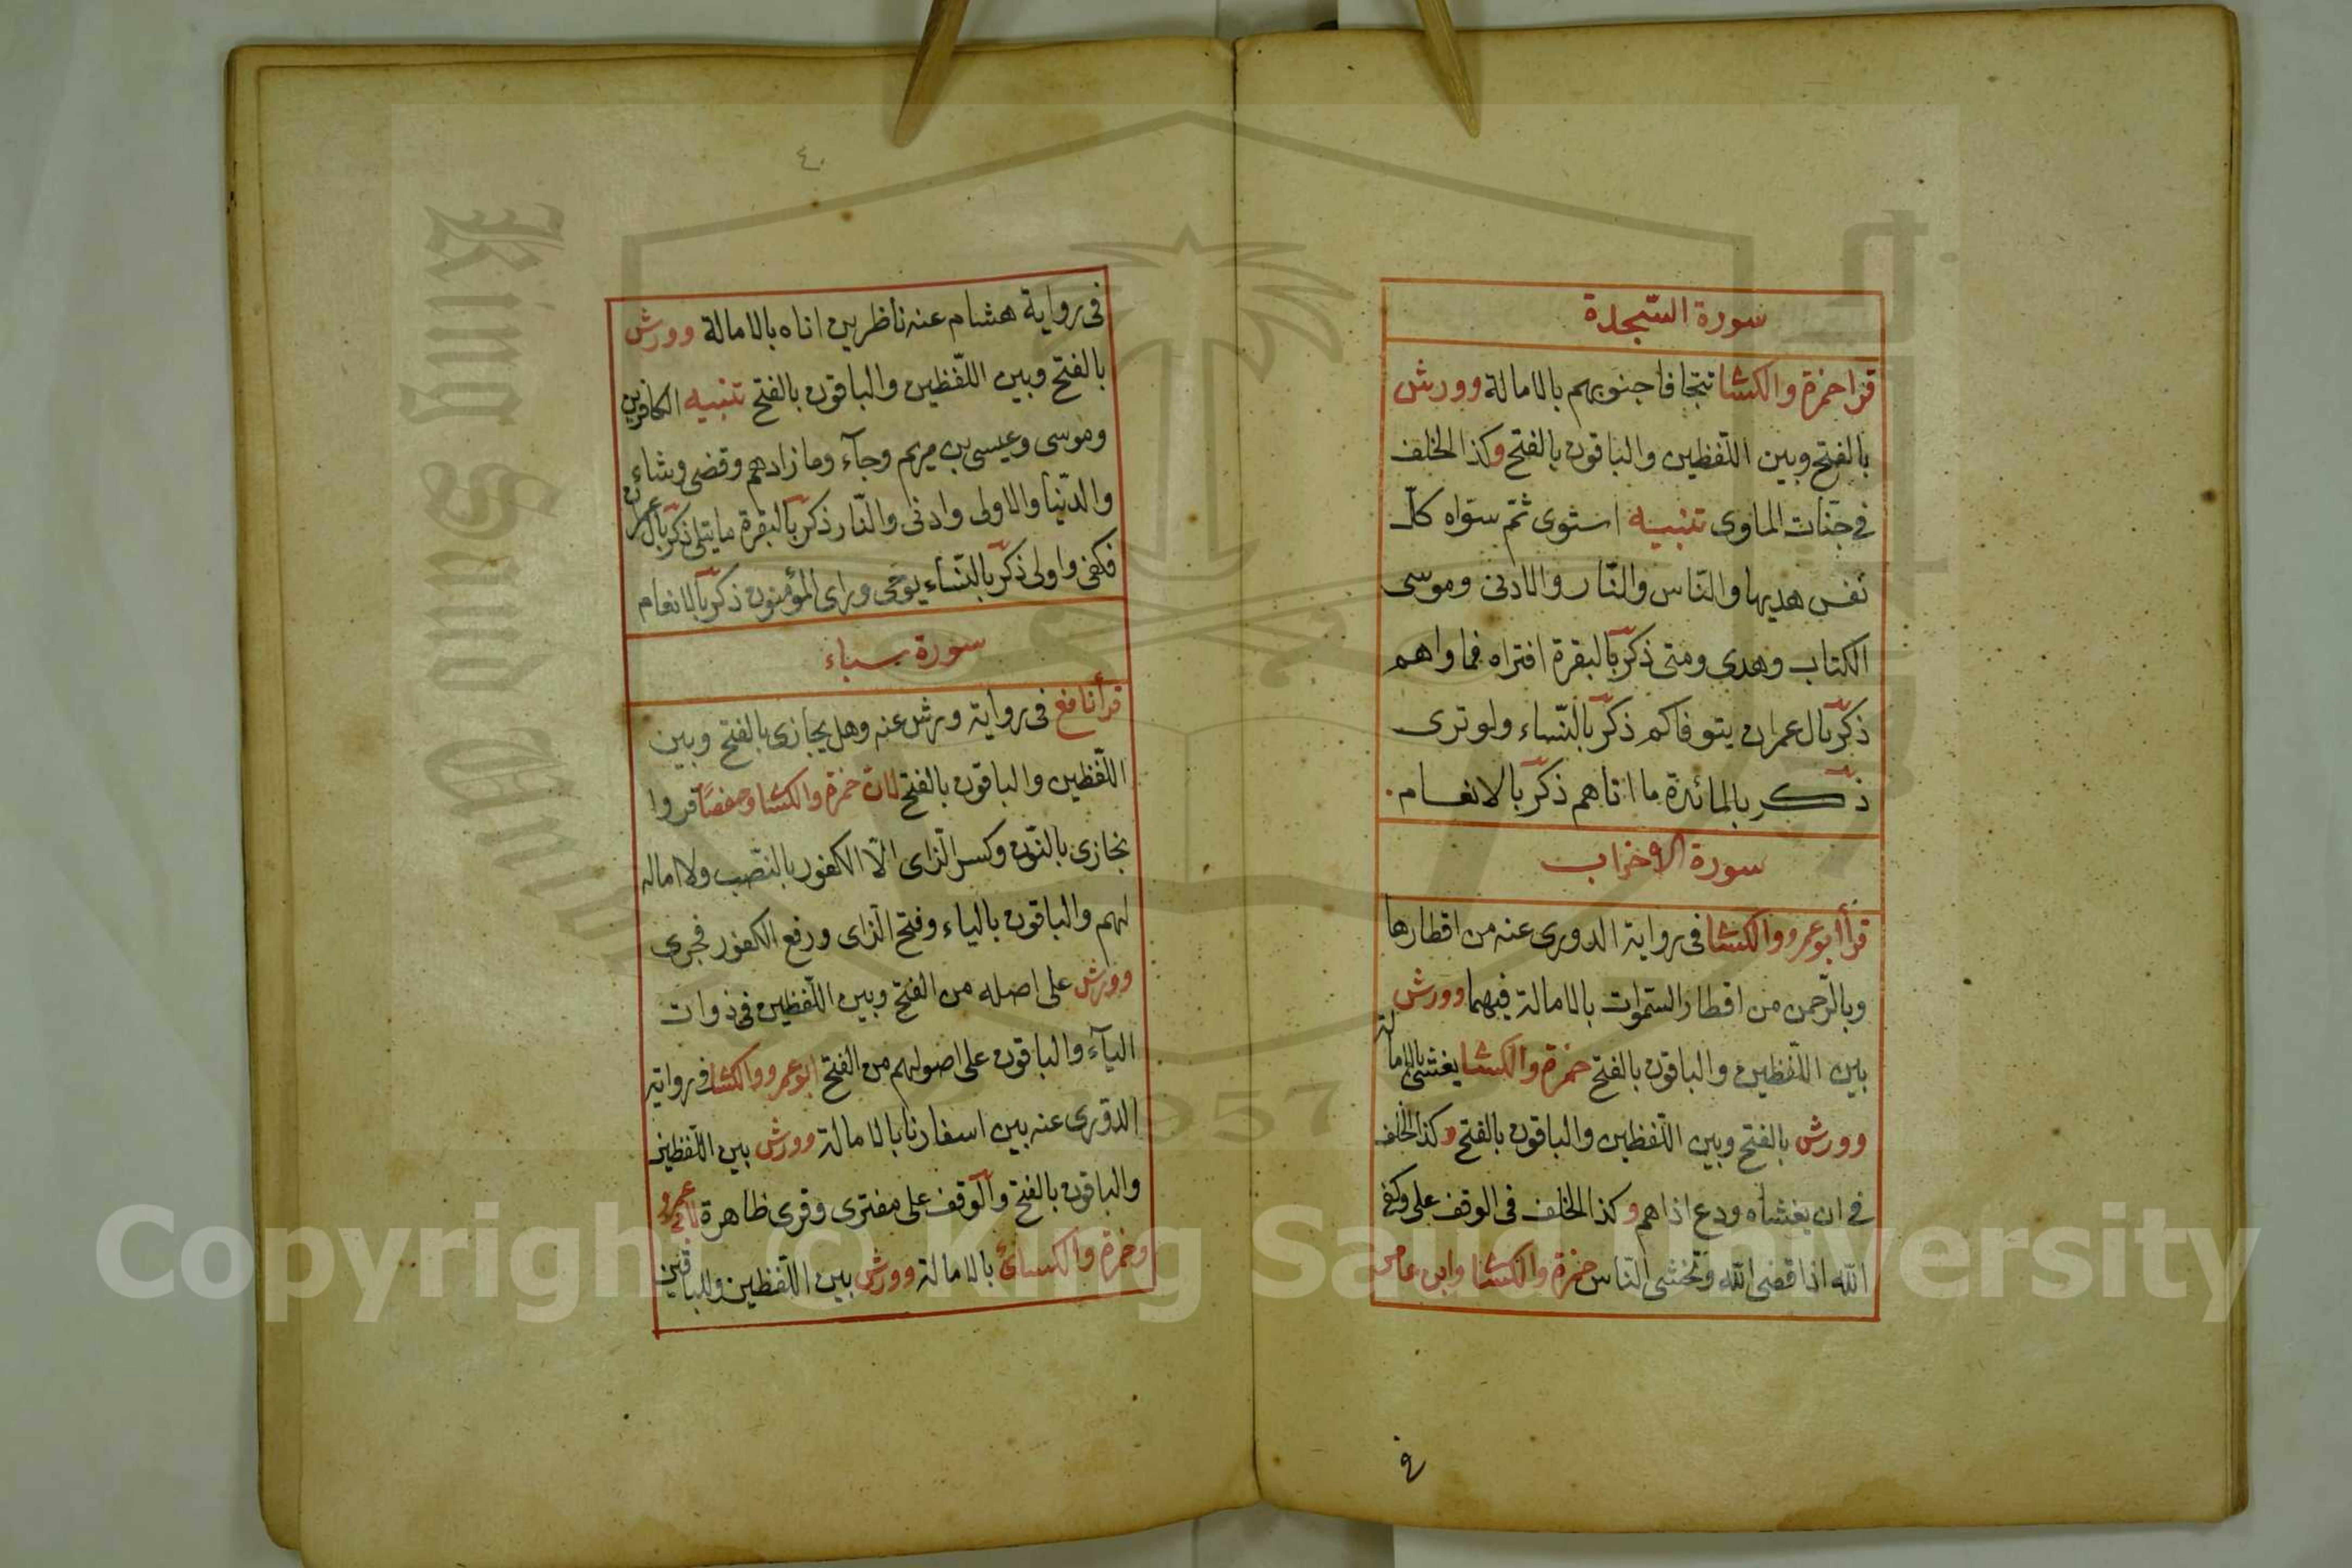 سورة السجدة
قرا حمزة والكسا تتجافا جنوبهم بالامالة وورش
بالفتح وبين اللّفظين والباقون بالفتح وكذا الخلف
في جنّات الماوى تنبيه استوى ثمّ سوّاه كلّ
نفس هديها والنّاس والنّار والادنى وموسى
الكتاب وهدى ومتى ذكر بالبقرة افتراه فماواهم
ذكر بآل عمران يتوفاكم ذكر بالنّساء ولو ترى
ذكر بالمائدة ما اتاهم ذكر بالانعام.
سورة الاحزاب
قرأ ابو عمرو والكسا فى رواية الدورى عنه من اقطارها
وبالرّحمن من اقطار السّموات بالامالة فيهما وورش
بين اللّفظين والباقون بالفتح حمزة والكسا يغشى بالامالة
وورش بالفتح وبين اللّفظين والباقون بالفتح وكذا الخلف
في ان يغشاه ودع اذاهم وكذا الخلف فى الوقف على وكفى
الله اذا قضى الله وتخشى النّاس حمزة والكسا وابن عامر
ع
٤٠
فى رواية هشام عنه ناظرين اناه بالامالة وورش
بالفتح وبين اللّفظين والباقون بالفتح تنبيه الكافرين
وموسى وعيسى بن مريم وجآء وما زادهم وقضى وشاء
والدّنيا والاولى وادنى والنّار ذكر بالبقرة ما يتلى ذكر بآل عمران
فكفى واولى ذكر بالنّساء يوحى وراى المؤمنون ذكر بالانعام
سورة سباء
قرأ نافع فى رواية ورش عنه وهل يجازى بالفتح وبين
اللّفظين والباقون بالفتح لان حمزة والكسا وحفصًا قروا
نجازى بالنّون وكسر الزّاى الّا الكفور بالنّصب ولا امالة
لهم والباقون بالياء وفتح الزّاى ورفع الكفور فجرى
وورش على اصله من الفتح وبين اللّفظين فى ذوات
اليآء والباقون على اصولهم من الفتح ابو عمرو والكسا فى رواية
الدّورى عنه بين اسفارنا بالامالة وورش بين اللّفظين
والباقون بالفتح والوقف على مفترى وقرى ظاهرة لابى عمرو
وحمزة والكسائ بالامالة وورش بين اللّفظين وللباقين
King Saud University
1957
Copyright © King Saud University